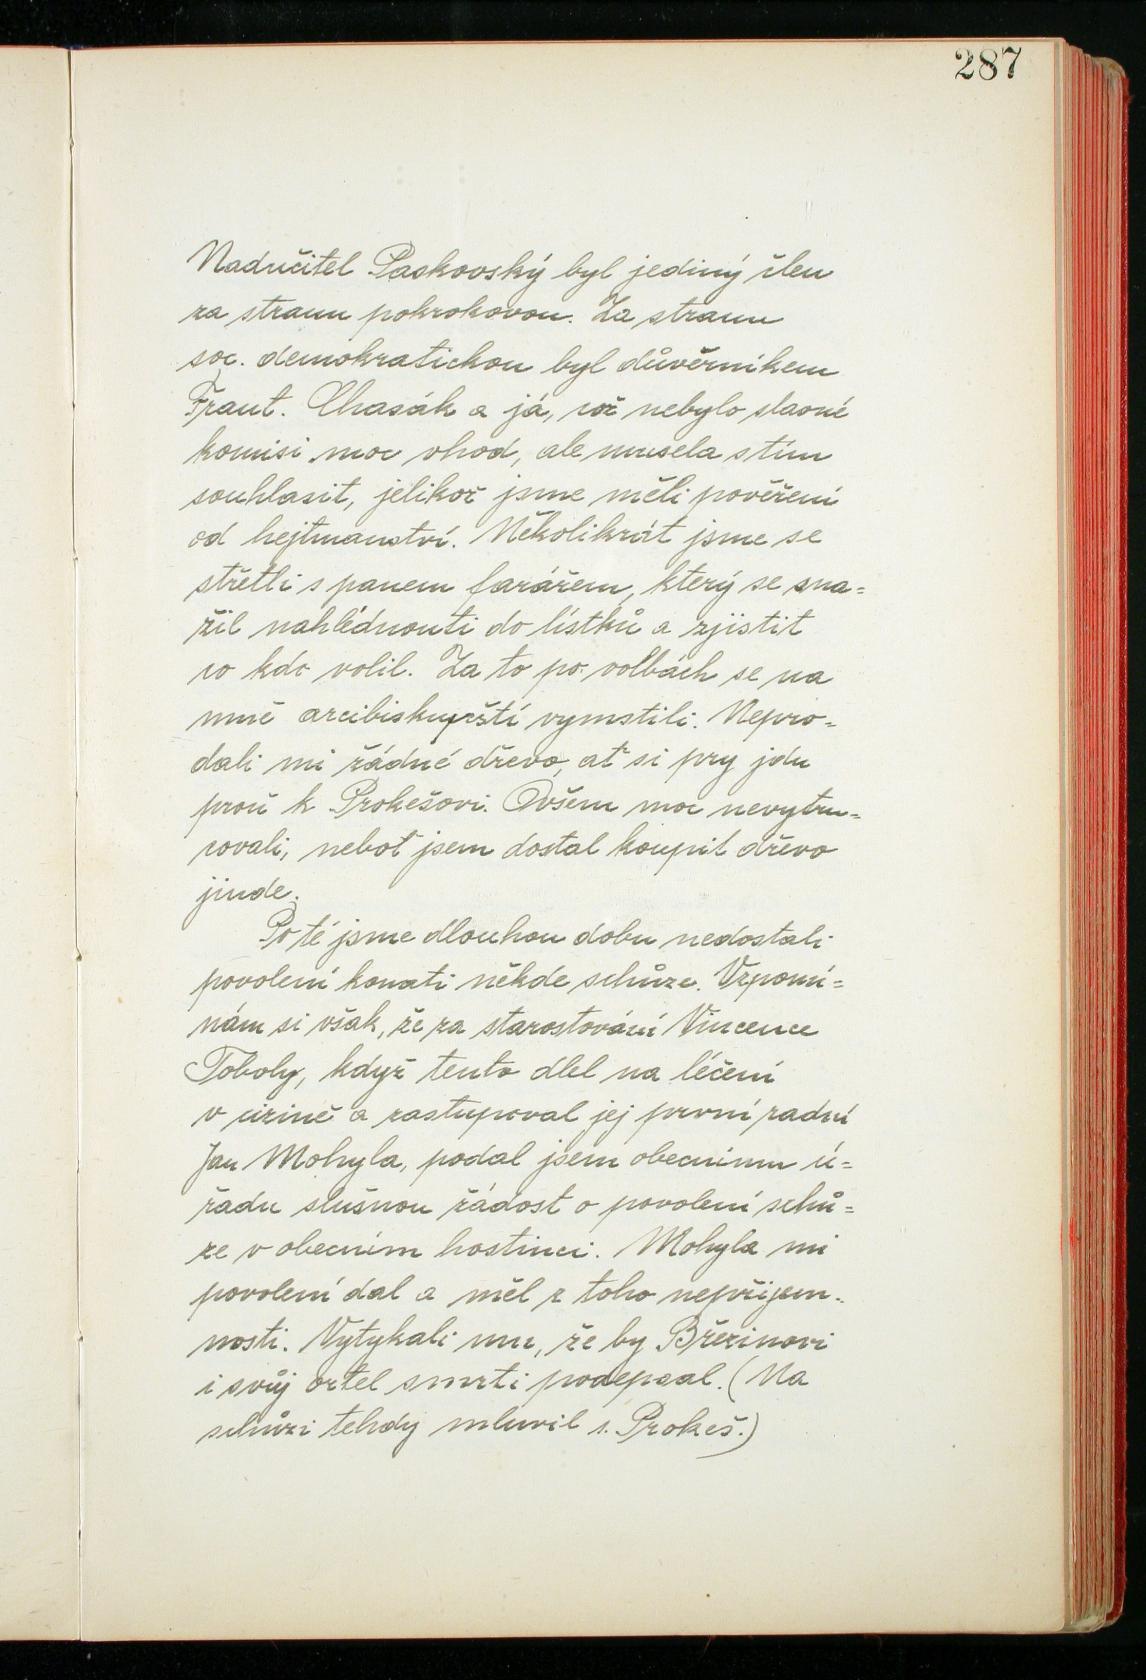 287
Nadučitel Paskovský byl jediný člen
za stranu pokrokovou. Za stranu
soc. demokratickou byl důvěrníkem
Frant. Chasák a já, což nebylo slavné
komisi moc vhod, ale musela s tím
souhlasit, jelikož jsme měli pověření
od hejtmanství. Několikrát jsme se
střetli s panem farářem, který se sna=
žil nahlédnouti do lístků a zjistit
co kdo volil. Za to po volbách se na
mně arcibiskupští vymstili. Nepro=
dali mi žádné dřevo, ať si prý jdu
proň k Prokešovi. Ovšem moc nevytru=
covali, neboť jsem dostal koupit dřevo
jinde.
Po té jsme dlouhou dobu nedostali
povolení konati někde schůze. Vzpomí=
nám si však, že za starostování Vincence
Toboly, když tento dlel na léčení
v cizině a zastupoval jej první radní
Jan Mohyla, podal jsem obecnímu ú=
řadu slušnou žádost o povolení schů=
ze v obecním hostinci. Mohyla mi
povolení dal a měl z toho nepříjem=
nosti. Vytykali mu, že by Březinovi
i svůj ortel smrti podepsal. (Na
schůzi tehdy mluvil s. Prokeš.)